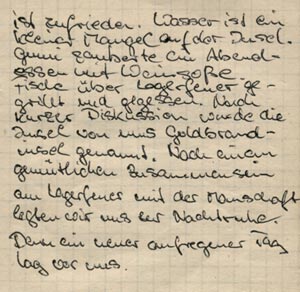 ist zufrieden. Wasser ist ein
keiner Mangel auf der Insel.
Gunn zauberte ein Abend-
essen mit Weinsoße.
Fische über Lagerfeuer ge-
grillt und gegessen. Nach
kurzer Diskussion wurde die
Insel von uns Goldsand-
insel genannt. Nach einem
gemütlichen Zusammensein
am Lagerfeuer mit der Manschaft
legten wir uns zur Nachtruhe.
Denn ein neuer aufregener Tag
lag vor uns.